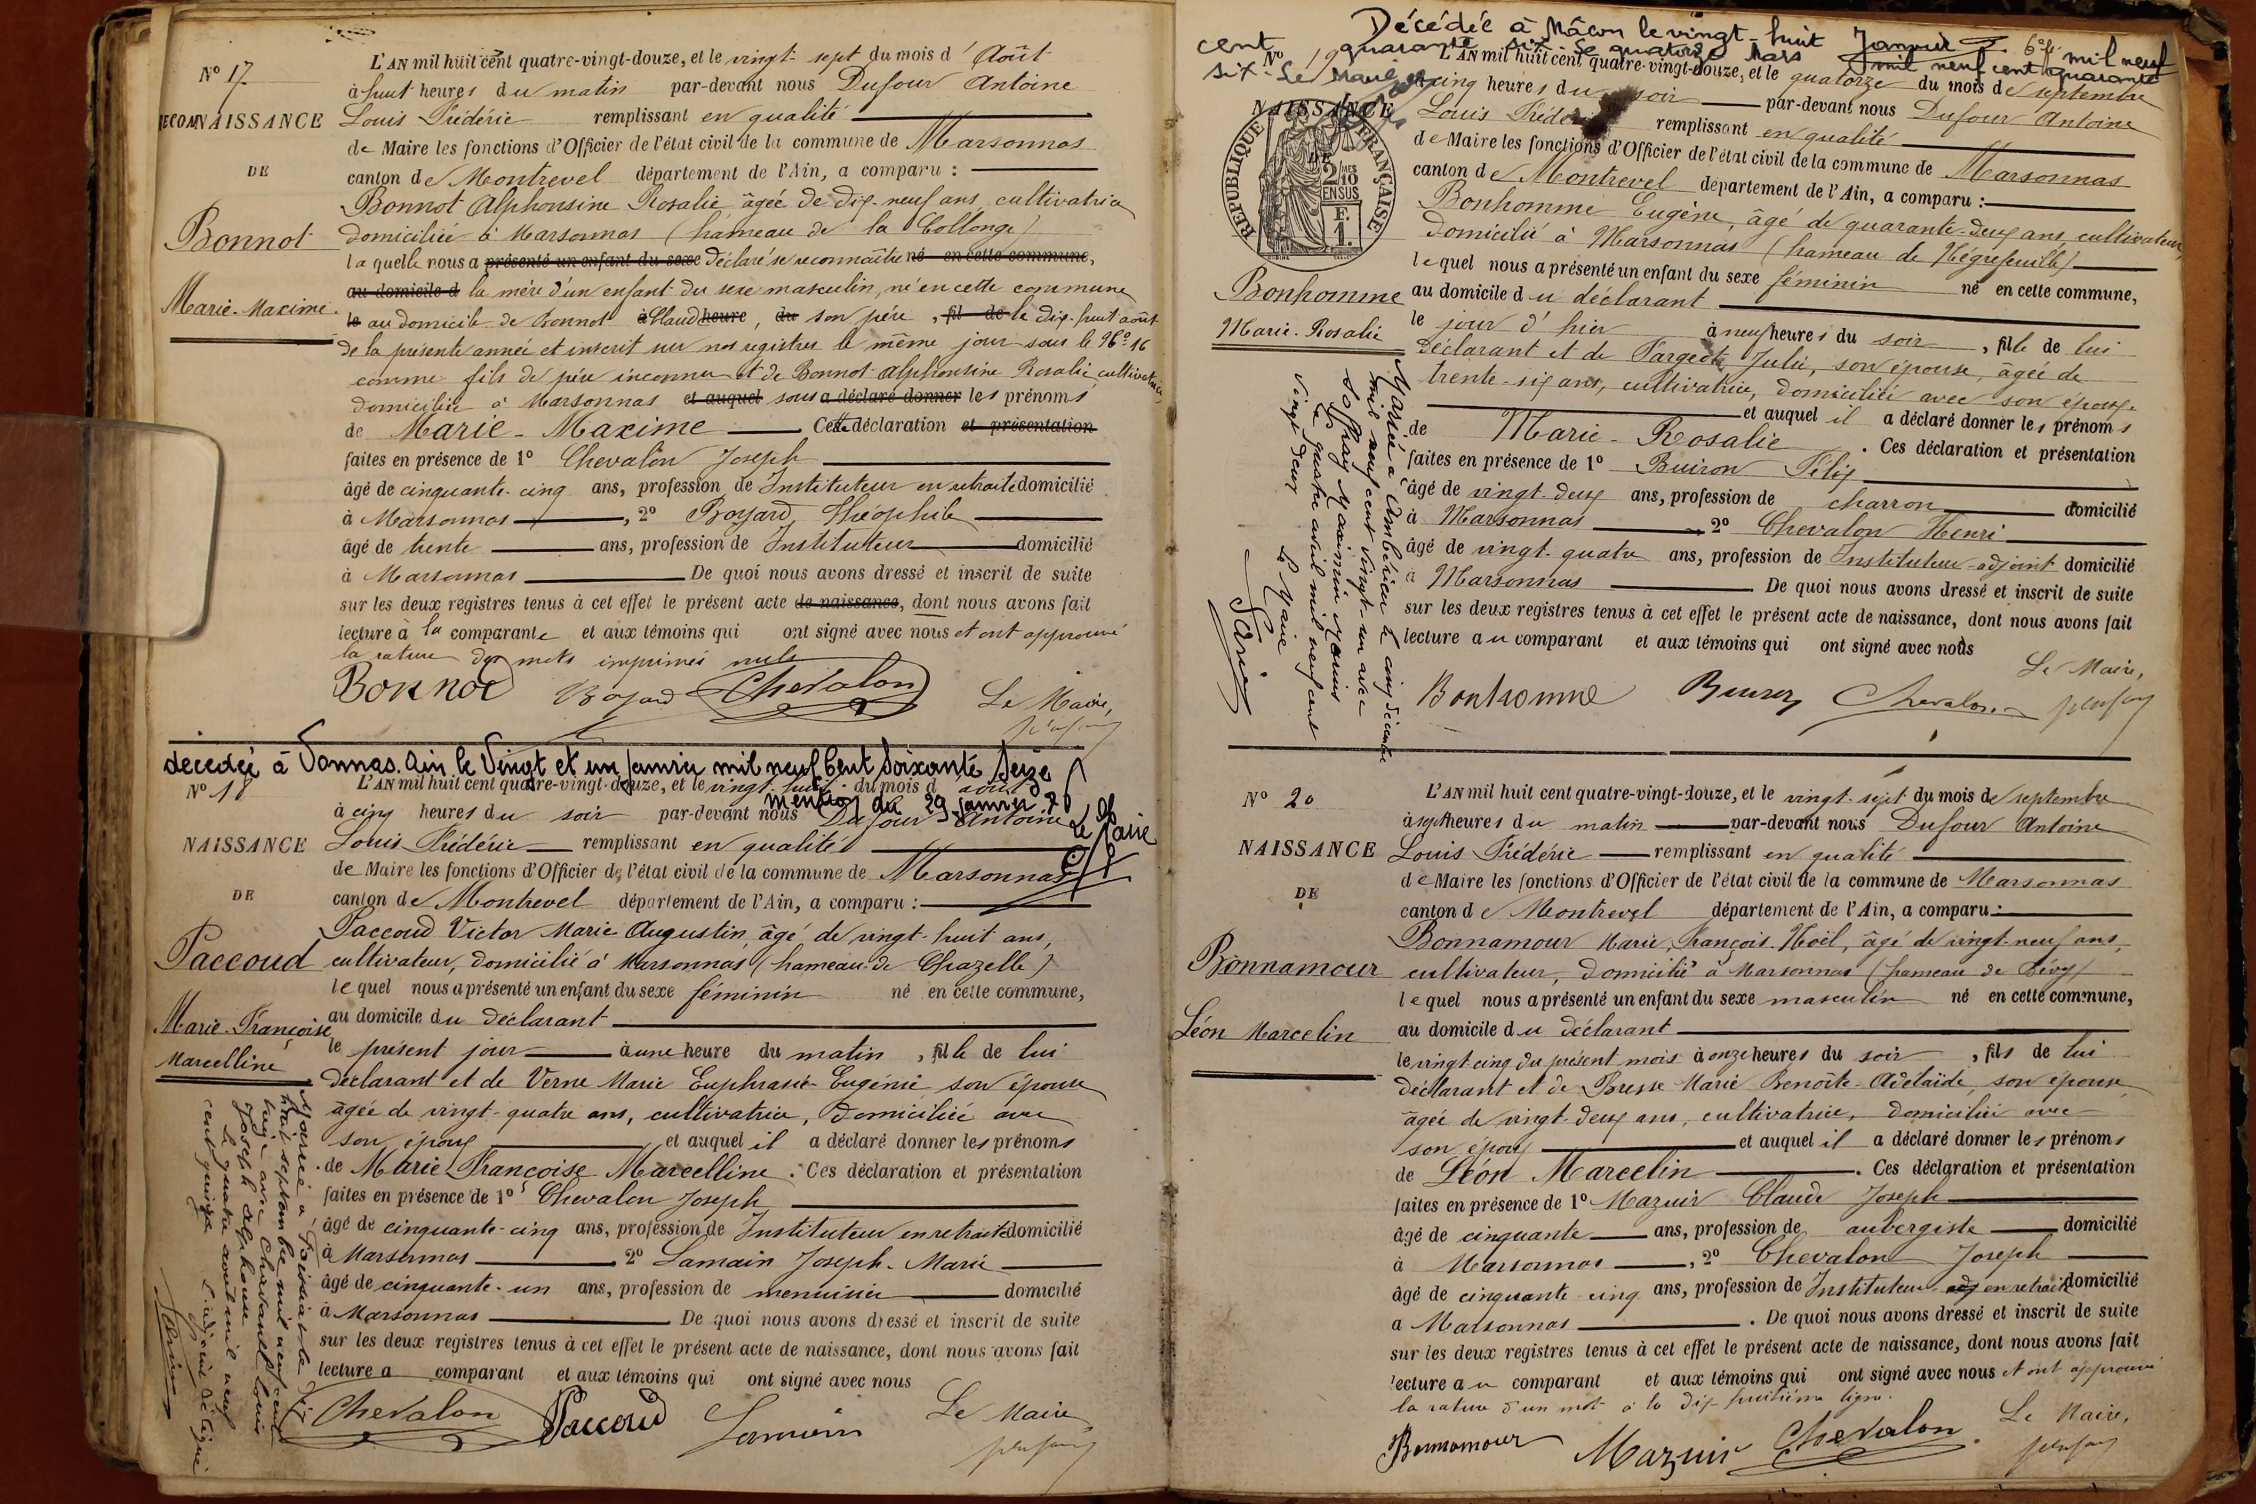 L'AN mil huit cent quatre-vingt-douze, et le vingt-sept du mois d'Août
N° 17
à huit heures du matin par-devant nous Dufour Antoine
RECONNAISSANCE
Louis Frédéric remplissant en qualité
de Maire les fonctions d'Officier de l'état civil de la commune de Marsonnas
DE
canton de Montrevel département de l'Ain, a comparu :
Bonnot Alphonsine Rosalie âgée de dix-neuf ans, cultivatrice
Bonnot
domiciliée à Marsonnas (hameau de la Collonge)
laquelle nous a présenté un enfant du sexe déclaré se reconnaître né en cette commune,
au domicile d la mère d'un enfant du sexe masculin, né en cette commune
Marie-Maxime
le au domicile de Bonnot à Claude heure, du son père, fil de le dix-huit août
de la présente année et inscrit sur nos registres le même jour sous le N° 16
comme fils de père inconnu et de Bonnot Alphonsine Rosalie, cultivatrice,
domiciliée à Marsonnas et auquel sous a déclaré donner les prénoms
de Marie-Maxime Cette déclaration et présentation
faites en présence de 1° Chevalon Joseph
âgé de cinquante-cinq ans, profession de Instituteur en retraite domicilié
à Marsonnas, 2° Boyard Théophile
âgé de trente ans, profession de Instituteur domicilié
à Marsonnas De quoi nous avons dressé et inscrit de suite
sur les deux registres tenus à cet effet le présent acte de naissance, dont nous avons fait
lecture à la comparante et aux témoins qui ont signé avec nous et ont approuvé
la rature des mots imprimés nuls
Bonnot Boyard Chevalon Le Maire,
décédée à Vonnas. Ain le Vingt et un janvier mil neuf Cent Soixante Seize
L'AN mil huit cent quatre-vingt-douze, et le vingt-huit du mois d'août
N° 18
mention du 29 janvier 76
à cinq heures du soir par-devant nous Dufour Antoine
Le Maire
NAISSANCE
Louis Frédéric remplissant en qualité
de Maire les fonctions d'Officier de l'état civil de la commune de Marsonnas
DE
canton de Montrevel département de l'Ain, a comparu :
Paccoud Victor Marie Augustin, âgé de vingt-huit ans,
Paccoud
cultivateur, domicilié à Marsonnas (hameau de Chazelle)
lequel nous a présenté un enfant du sexe féminin né en cette commune,
au domicile du déclarant
Marie-Françoise
le présent jour à une heure du matin, fille de lui
Marcelline
déclarant et de Verne Marie Euphrasie Eugénie son épouse
âgée de vingt-quatre ans, cultivatrice, domiciliée avec
son époux et auquel il a déclaré donner les prénoms
de Marie Françoise Marcelline. Ces déclaration et présentation
faites en présence de 1° Chevalon Joseph
âgé de cinquante-cinq ans, profession de Instituteur en retraite domicilié
à Marsonnas 2° Lamain Joseph-Marie
âgé de cinquante-un ans, profession de menuisier domicilié
à Marsonnas De quoi nous avons dressé et inscrit de suite
sur les deux registres tenus à cet effet le présent acte de naissance, dont nous avons fait
lecture a comparant et aux témoins qui ont signé avec nous
Mariée à Foissiat le dix
huit septembre mil neuf cent
avec Chavanel Louis
Joseph Alphonse
Le quatre août mil neuf
cent quinze L'adjoint délégué
Chevalon Paccoud Lamain Le Maire
Décédée à Mâcon le vingt-huit Janvier mil neuf
cent quarante six. Le quatorze Mars mil neuf cent quarante
six. Le Maire
L'AN mil huit cent quatre-vingt-douze, et le quatorze du mois de septembre
N° 19
à cinq heures du soir par-devant nous Dufour Antoine
NAISSANCE
Louis Frédéric remplissant en qualité
DE
de Maire les fonctions d'Officier de l'état civil de la commune de Marsonnas
REPUBLIQUE FRANÇAISE
2/10 MES
EN SUS
F.
1.
canton de Montrevel département de l'Ain, a comparu :
Bonhomme Eugène, âgé de quarante-deux ans, cultivateur,
domicilié à Marsonnas (hameau de Négrefeuille)
lequel nous a présenté un enfant du sexe féminin né en cette commune,
Bonhomme
au domicile du déclarant
le jour d'hier à neuf heures du soir, fille de lui
Marie-Rosalie
déclarant et de Fargeot Julie, son épouse, âgée de
trente-six ans, cultivatrice, domiciliée avec son époux.
et auquel il a déclaré donner les prénoms
de Marie-Rosalie. Ces déclaration et présentation
faites en présence de 1° Buiron Félix
âgé de vingt-deux ans, profession de charron domicilié
à Marsonnas 2° Chevalon Henri
âgé de vingt-quatre ans, profession de Instituteur-adjoint domicilié
à Marsonnas De quoi nous avons dressé et inscrit de suite
sur les deux registres tenus à cet effet le présent acte de naissance, dont nous avons fait
lecture au comparant et aux témoins qui ont signé avec nous
Mariée à Ambérieu le cinq décembre
mil neuf cent vingt-un avec
Joffray Maximin
Le quatre avril mil neuf cent
vingt deux Le Maire
Le Maire,
Bonhomme Buiron Chevalon
L'AN mil huit cent quatre-vingt-douze, et le vingt-sept du mois de septembre
N° 20
à sept heures du matin par-devant nous Dufour Antoine
NAISSANCE
Louis Frédéric remplissant en qualité
de Maire les fonctions d'Officier de l'état civil de la commune de Marsonnas
DE
canton de Montrevel département de l'Ain, a comparu :
Bonnamour Marie François Noël, âgé de vingt-neuf ans,
Bonnamour
cultivateur, domicilié à Marsonnas (hameau de Lévy)
lequel nous a présenté un enfant du sexe masculin né en cette commune,
Léon Marcelin
au domicile du déclarant
le vingt-cinq du présent mois à onze heures du soir, fils de lui
déclarant et de Bresse Marie Benoîte-Adélaïde, son épouse
âgée de vingt-deux ans, cultivatrice, domiciliée avec
son époux et auquel il a déclaré donner les prénoms
de Léon Marcelin. Ces déclaration et présentation
faites en présence de 1° Mazuir Claude Joseph
âgé de cinquante ans, profession de aubergiste domicilié
à Marsonnas, 2° Chevalon Joseph
âgé de cinquante-cinq ans, profession de Instituteur adj en retraite domicilié
à Marsonnas. De quoi nous avons dressé et inscrit de suite
sur les deux registres tenus à cet effet le présent acte de naissance, dont nous avons fait
lecture au comparant et aux témoins qui ont signé avec nous et ont approuvé
la rature d'un mot à la dix-huitième ligne.
Le Maire,
Bonnamour Mazuir Chevalon